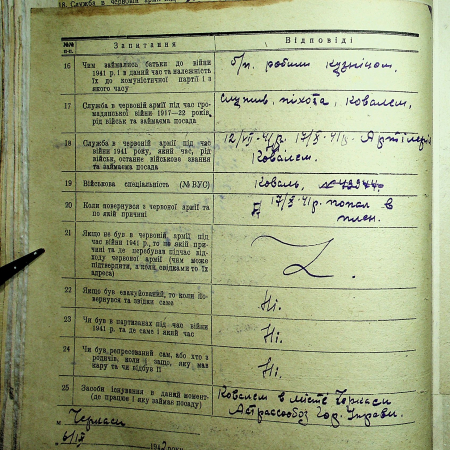 18. Служба в червоній армії під
№№ п-п.
Запитання
Відповіді
16
Чим займались батьки до війни
1941 р. і в даний час та належність
їх до комуністичної партії і з
якого часу
б/п. робили кузнічом.
17
Служба в червоній армії під час гро-
мадянської війни 1917—22 років,
рід військ та займаєма посада
служив, піхота, Ковалем,
18
Служба в червоній армії під час
війни 1941 року, який час, рід
військ, останнє військове звання
та займаєма посада
12/VII-41р. 17/X-41р. Артілерія
Ковалем.
19
Військова спеціяльність (№ВУС)
Коваль,
20
Коли повернувся з червоної армії та
по якій причині
17/X-41р. попал в
плен.
21
Якщо не був в червоній армії під
час війни 1941 р., то по якій при-
чині та де перебував підчас від-
ходу червоної армії (чим може
підтвердити, а коли свідками то їх
адреса)
22
Якщо був евакуйований, то коли по-
вернувся та звідки саме
Ні.
23
Чи був в партизанах під час війни
1941 р. та де саме і який час
Ні.
24
Чи був репресований сам, або хто з
родичів, коли і защо, яку мав
кару та чи відбув її
Ні.
25
Засоби існування в даний момент
(де працює і яку займає посаду)
Ковалем в місте Черкаси
Управи.
м Черкаси
6/IX 1942 року